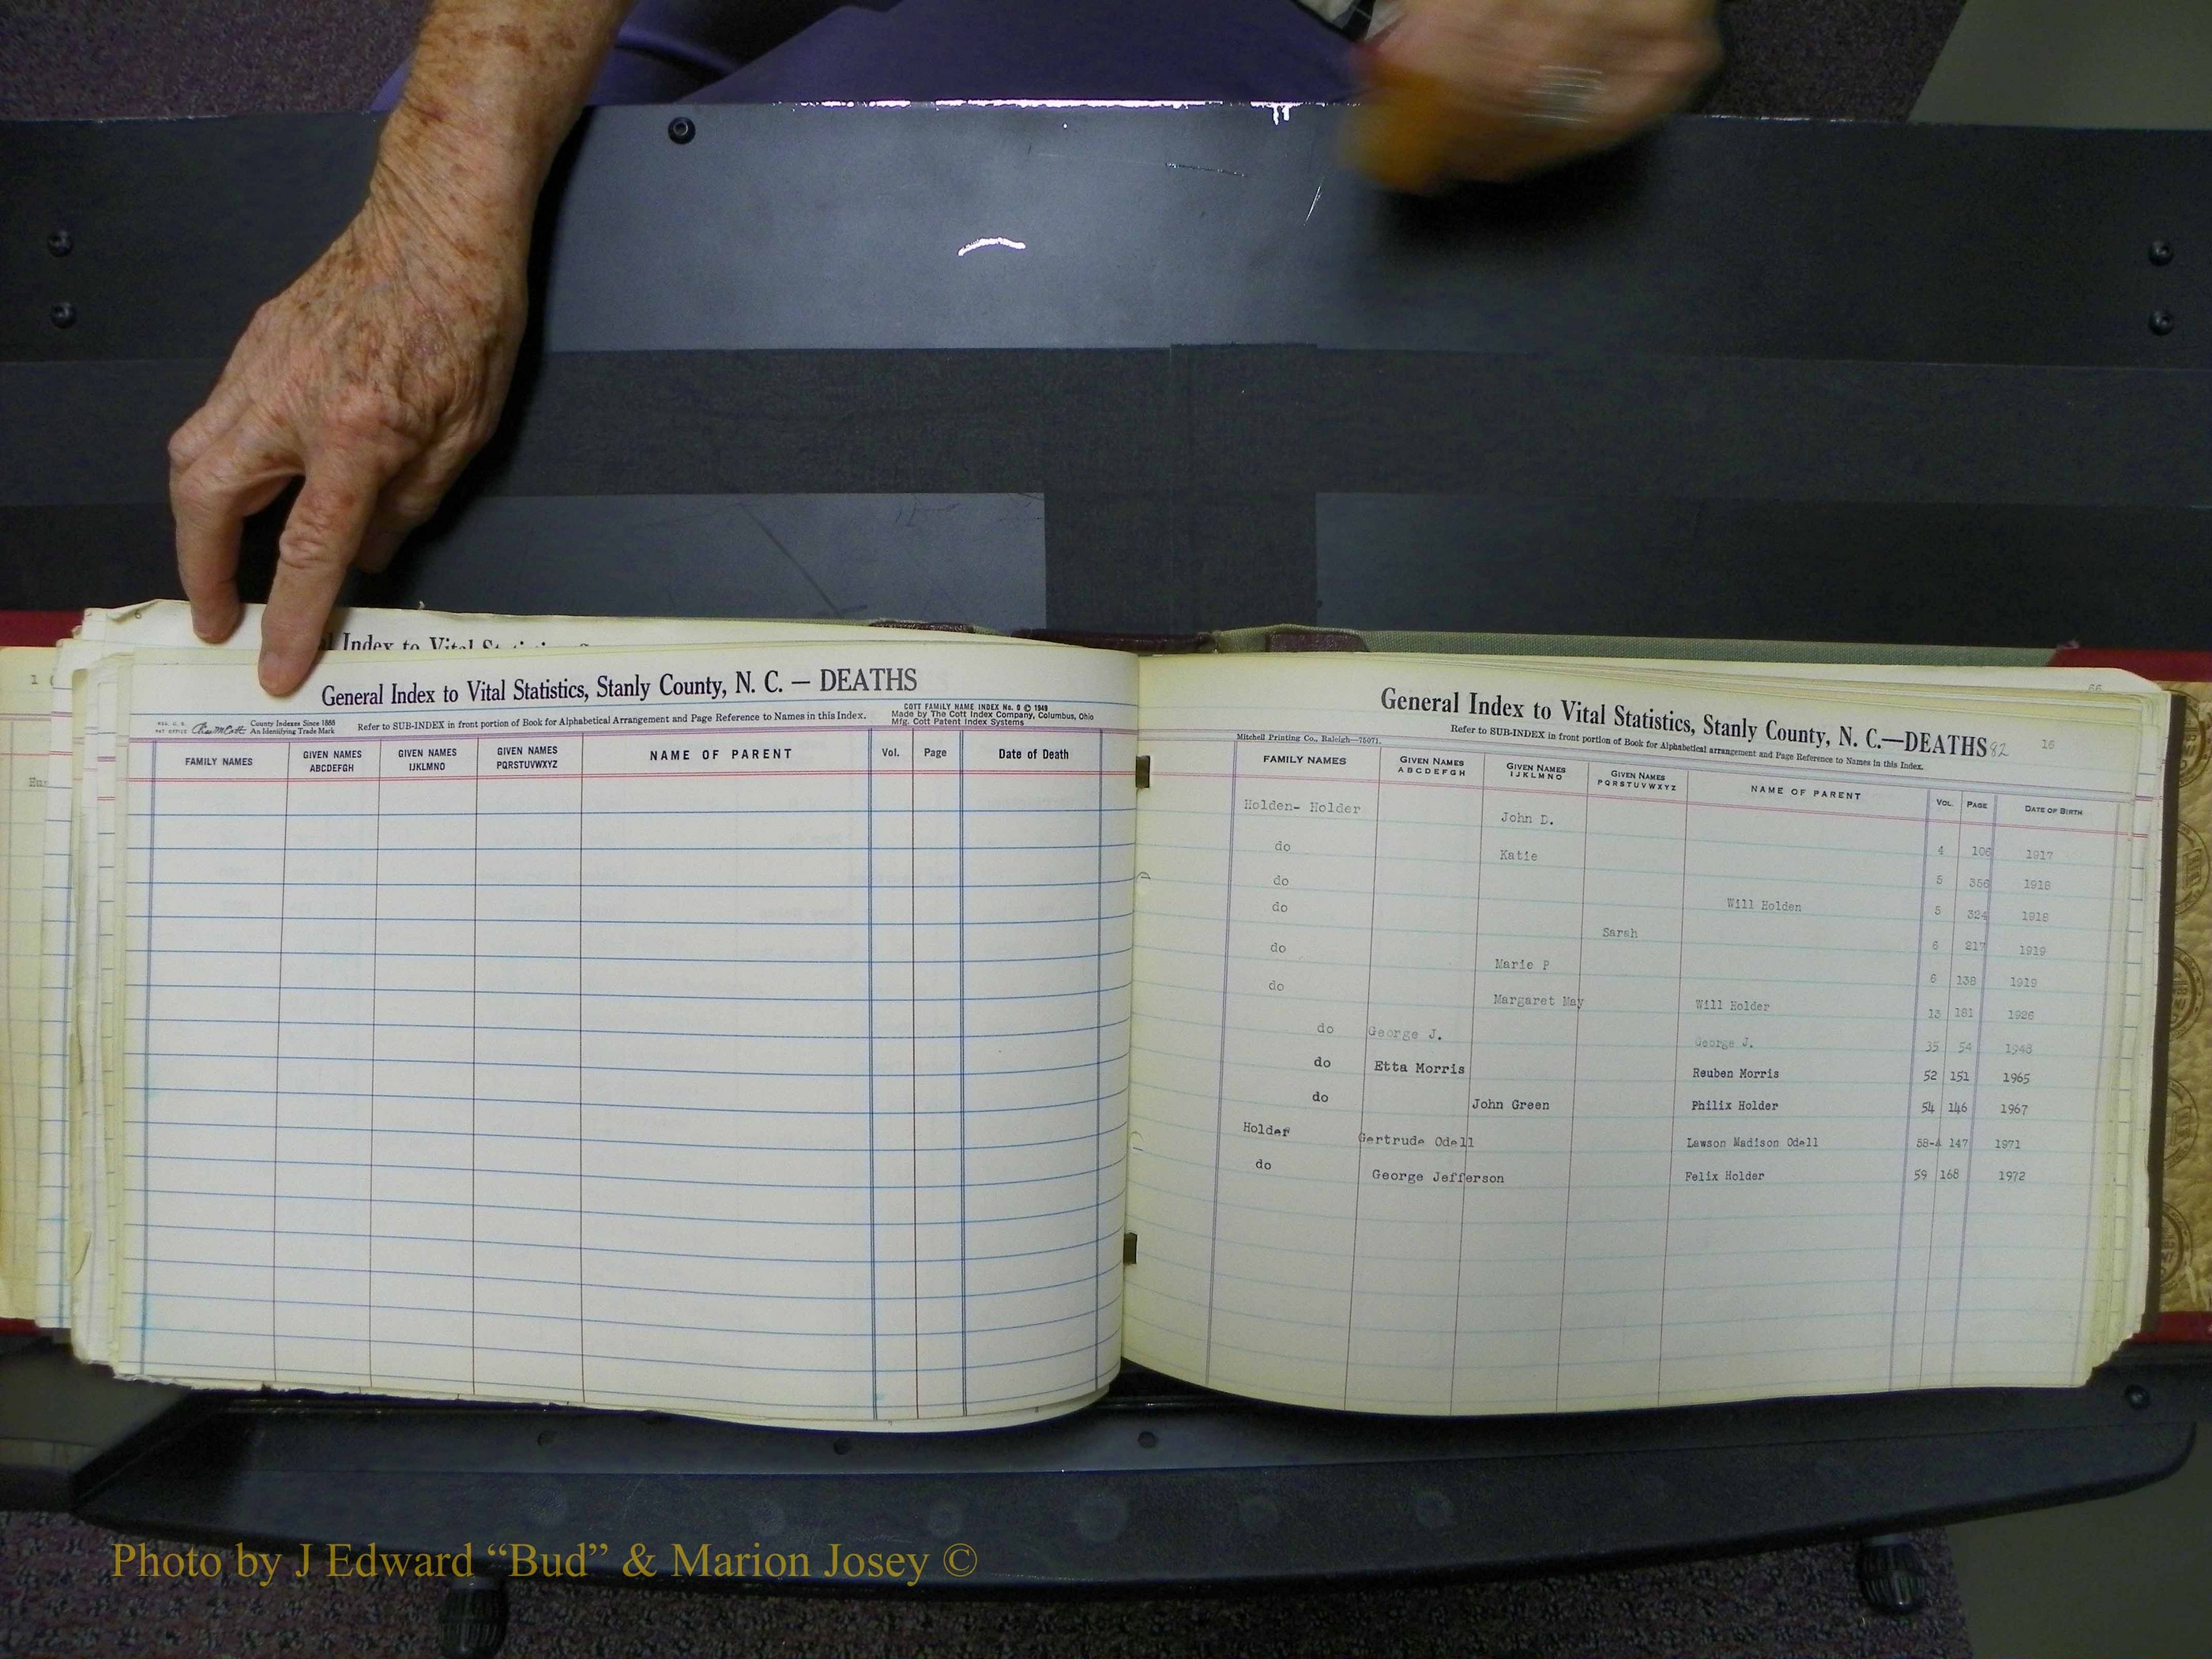 General Index to Vital Statistics, Stanly County, N. C. — DEATHS
COTT FAMILY NAME INDEX No. 9 © 1949
Made by The Cott Index Company, Columbus, Ohio
Mfg. Cott Patent Index Systems
County Indexes Since 1888
An Identifying Trade Mark
Refer to SUB-INDEX in front portion of Book for Alphabetical Arrangement and Page Reference to Names in this Index.
FAMILY NAMES GIVEN NAMES ABCDEFGH GIVEN NAMES IJKLMNO GIVEN NAMES PQRSTUVWXYZ NAME OF PARENT Vol. Page Date of Death
General Index to Vital Statistics, Stanly County, N. C.—DEATHS 82 16
Mitchell Printing Co., Raleigh—75071.
Refer to SUB-INDEX in front portion of Book for Alphabetical arrangement and Page Reference to Names in this Index.
FAMILY NAMES GIVEN NAMES ABCDEFGH GIVEN NAMES IJKLMNO GIVEN NAMES PQRSTUVWXYZ NAME OF PARENT VOL. PAGE DATE OF BIRTH
Holden- Holder John D. 4 106 1917
do Katie 5 356 1918
do Will Holden 5 324 1918
do Sarah 6 217 1919
do Marie P 6 138 1919
do Margaret May Will Holder 13 181 1926
do George J. George J. 35 54 1948
do Etta Morris Reuben Morris 52 151 1965
do John Green Philix Holder 54 146 1967
Holder Gertrude Odell Lawson Madison Odell 58-A 147 1971
do George Jefferson Felix Holder 59 168 1972
Photo by J Edward “Bud” & Marion Josey ©